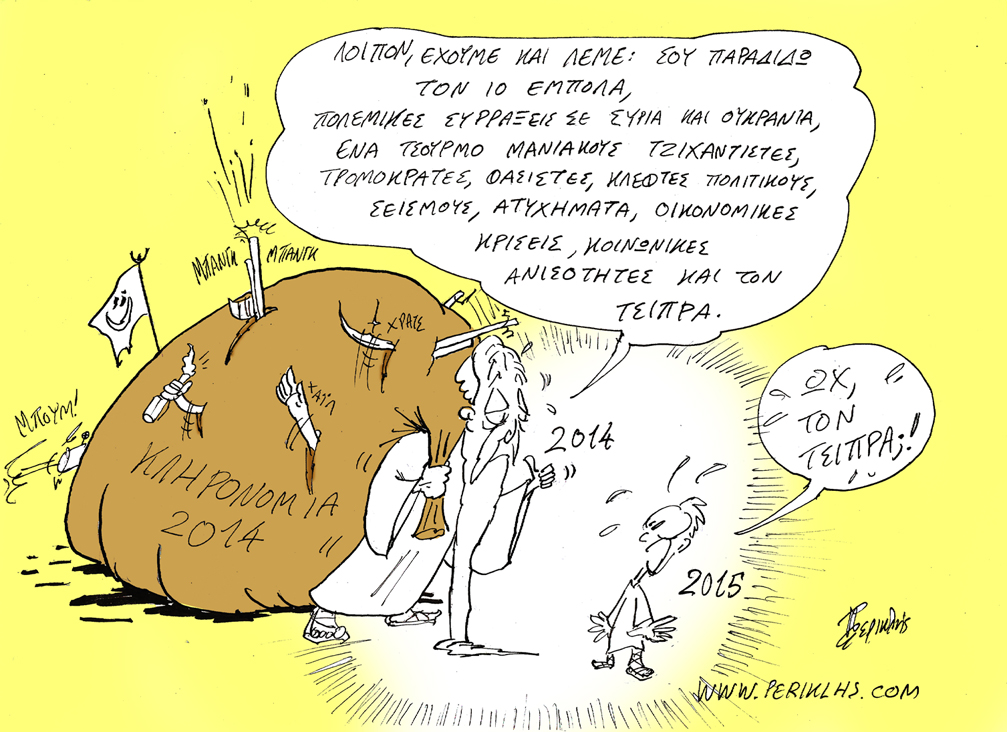 ΛΟΙΠΟΝ, ΕΧΟΥΜΕ ΚΑΙ ΛΕΜΕ: ΣΟΥ ΠΑΡΑΔΙΔΩ
ΤΟΝ ΙΟ ΕΜΠΟΛΑ,
ΠΟΛΕΜΙΚΕΣ ΣΥΡΡΑΞΕΙΣ ΣΕ ΣΥΡΙΑ ΚΑΙ ΟΥΚΡΑΝΙΑ,
ΕΝΑ ΤΣΟΥΡΜΟ ΜΑΝΙΑΚΟΥΣ ΤΖΙΧΑΝΤΙΣΤΕΣ,
ΤΡΟΜΟΚΡΑΤΕΣ, ΦΑΣΙΣΤΕΣ, ΚΛΕΦΤΕΣ ΠΟΛΙΤΙΚΟΥΣ,
ΣΕΙΣΜΟΥΣ, ΑΤΥΧΗΜΑΤΑ, ΟΙΚΟΝΟΜΙΚΕΣ
ΚΡΙΣΕΙΣ, ΚΟΙΝΩΝΙΚΕΣ
ΑΝΙΣΟΤΗΤΕΣ ΚΑΙ ΤΟΝ
ΤΣΙΠΡΑ.
ΜΠΑΝΓΚ ΜΠΑΝΓΚ
ΧΡΑΤΣ
ΧΑΪΛ
ΜΠΟΥΜ!
ΚΛΗΡΟΝΟΜΙΑ
2014
2014
ΩΧ,
ΤΟΝ
ΤΣΙΠΡΑ;!
2015
Περικλής
WWW.PERIKLHS.COM